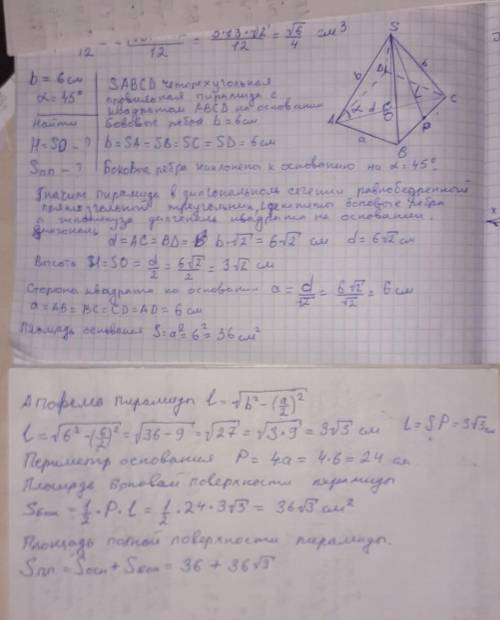 12 12 = 2√3·√2 / 12 = √6 / 4 см³
b = 6 см
α = 45°
Найти
H = SO - ?
Sпп - ?
SABCD четырехугольная
правильная пирамида с
квадратом ABCD на основании
боковые ребра b = 6 см
b = SA = SB = SC = SD = 6 см
Боковые ребра наклонены к основанию на α = 45°.
S
b
b
D
L
A
α
d
O
C
P
a
B
Значит пирамида в диагональном сечении равнобедренный
прямоугольный треугольник, где катеты боковые ребра
а гипотенуза диагональ квадрата на основании.
Диагональ
d = AC = BD = b·√2 = 6√2 см d = 6√2 см
Высота H = SO = d/2 = 6√2/2 = 3√2 см
Сторона квадрата на основании a = d/√2 = 6√2/√2 = 6 см
a = AB = BC = CD = AD = 6 см
Площадь основания S = a² = 6² = 36 см²
Апофема пирамиды l = √(b² - (a/2)²)
l = √(6² - (6/2)²) = √(36 - 9) = √27 = √(3·9) = 3√3 см l = SP = 3√3 см
Периметр основания P = 4a = 4·6 = 24 см
Площадь боковой поверхности пирамиды
Sбок = 1/2·P·l = 1/2·24·3√3 = 36√3 см²
Площадь полной поверхности пирамиды.
Sпп = Sосн + Sбок = 36 + 36√3